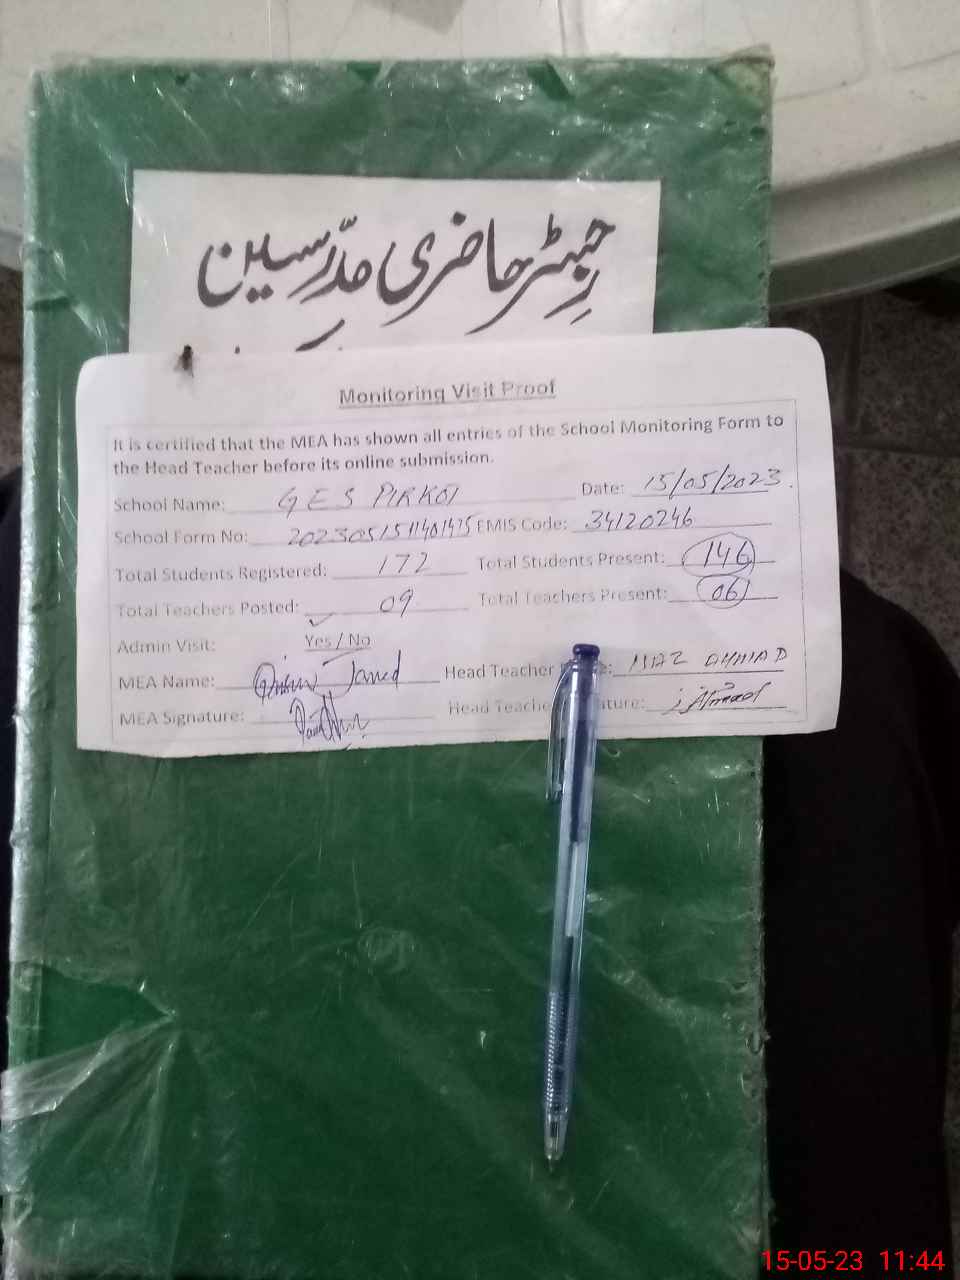 رجسٹر حاضری مدرسین
Monitoring Visit Proof
It is certified that the MEA has shown all entries of the School Monitoring Form to
the Head Teacher before its online submission.
School Name: GES PIRKOT Date: 15/05/2023.
School Form No: EMIS Code: 34120246
Total Students Registered: 172 Total Students Present: 146
Total Teachers Posted: 09 Total Teachers Present: 06
Admin Visit: Yes / No
MEA Name: Head Teacher AHMAD
MEA Signature: Head Teache
15-05-23 11:44